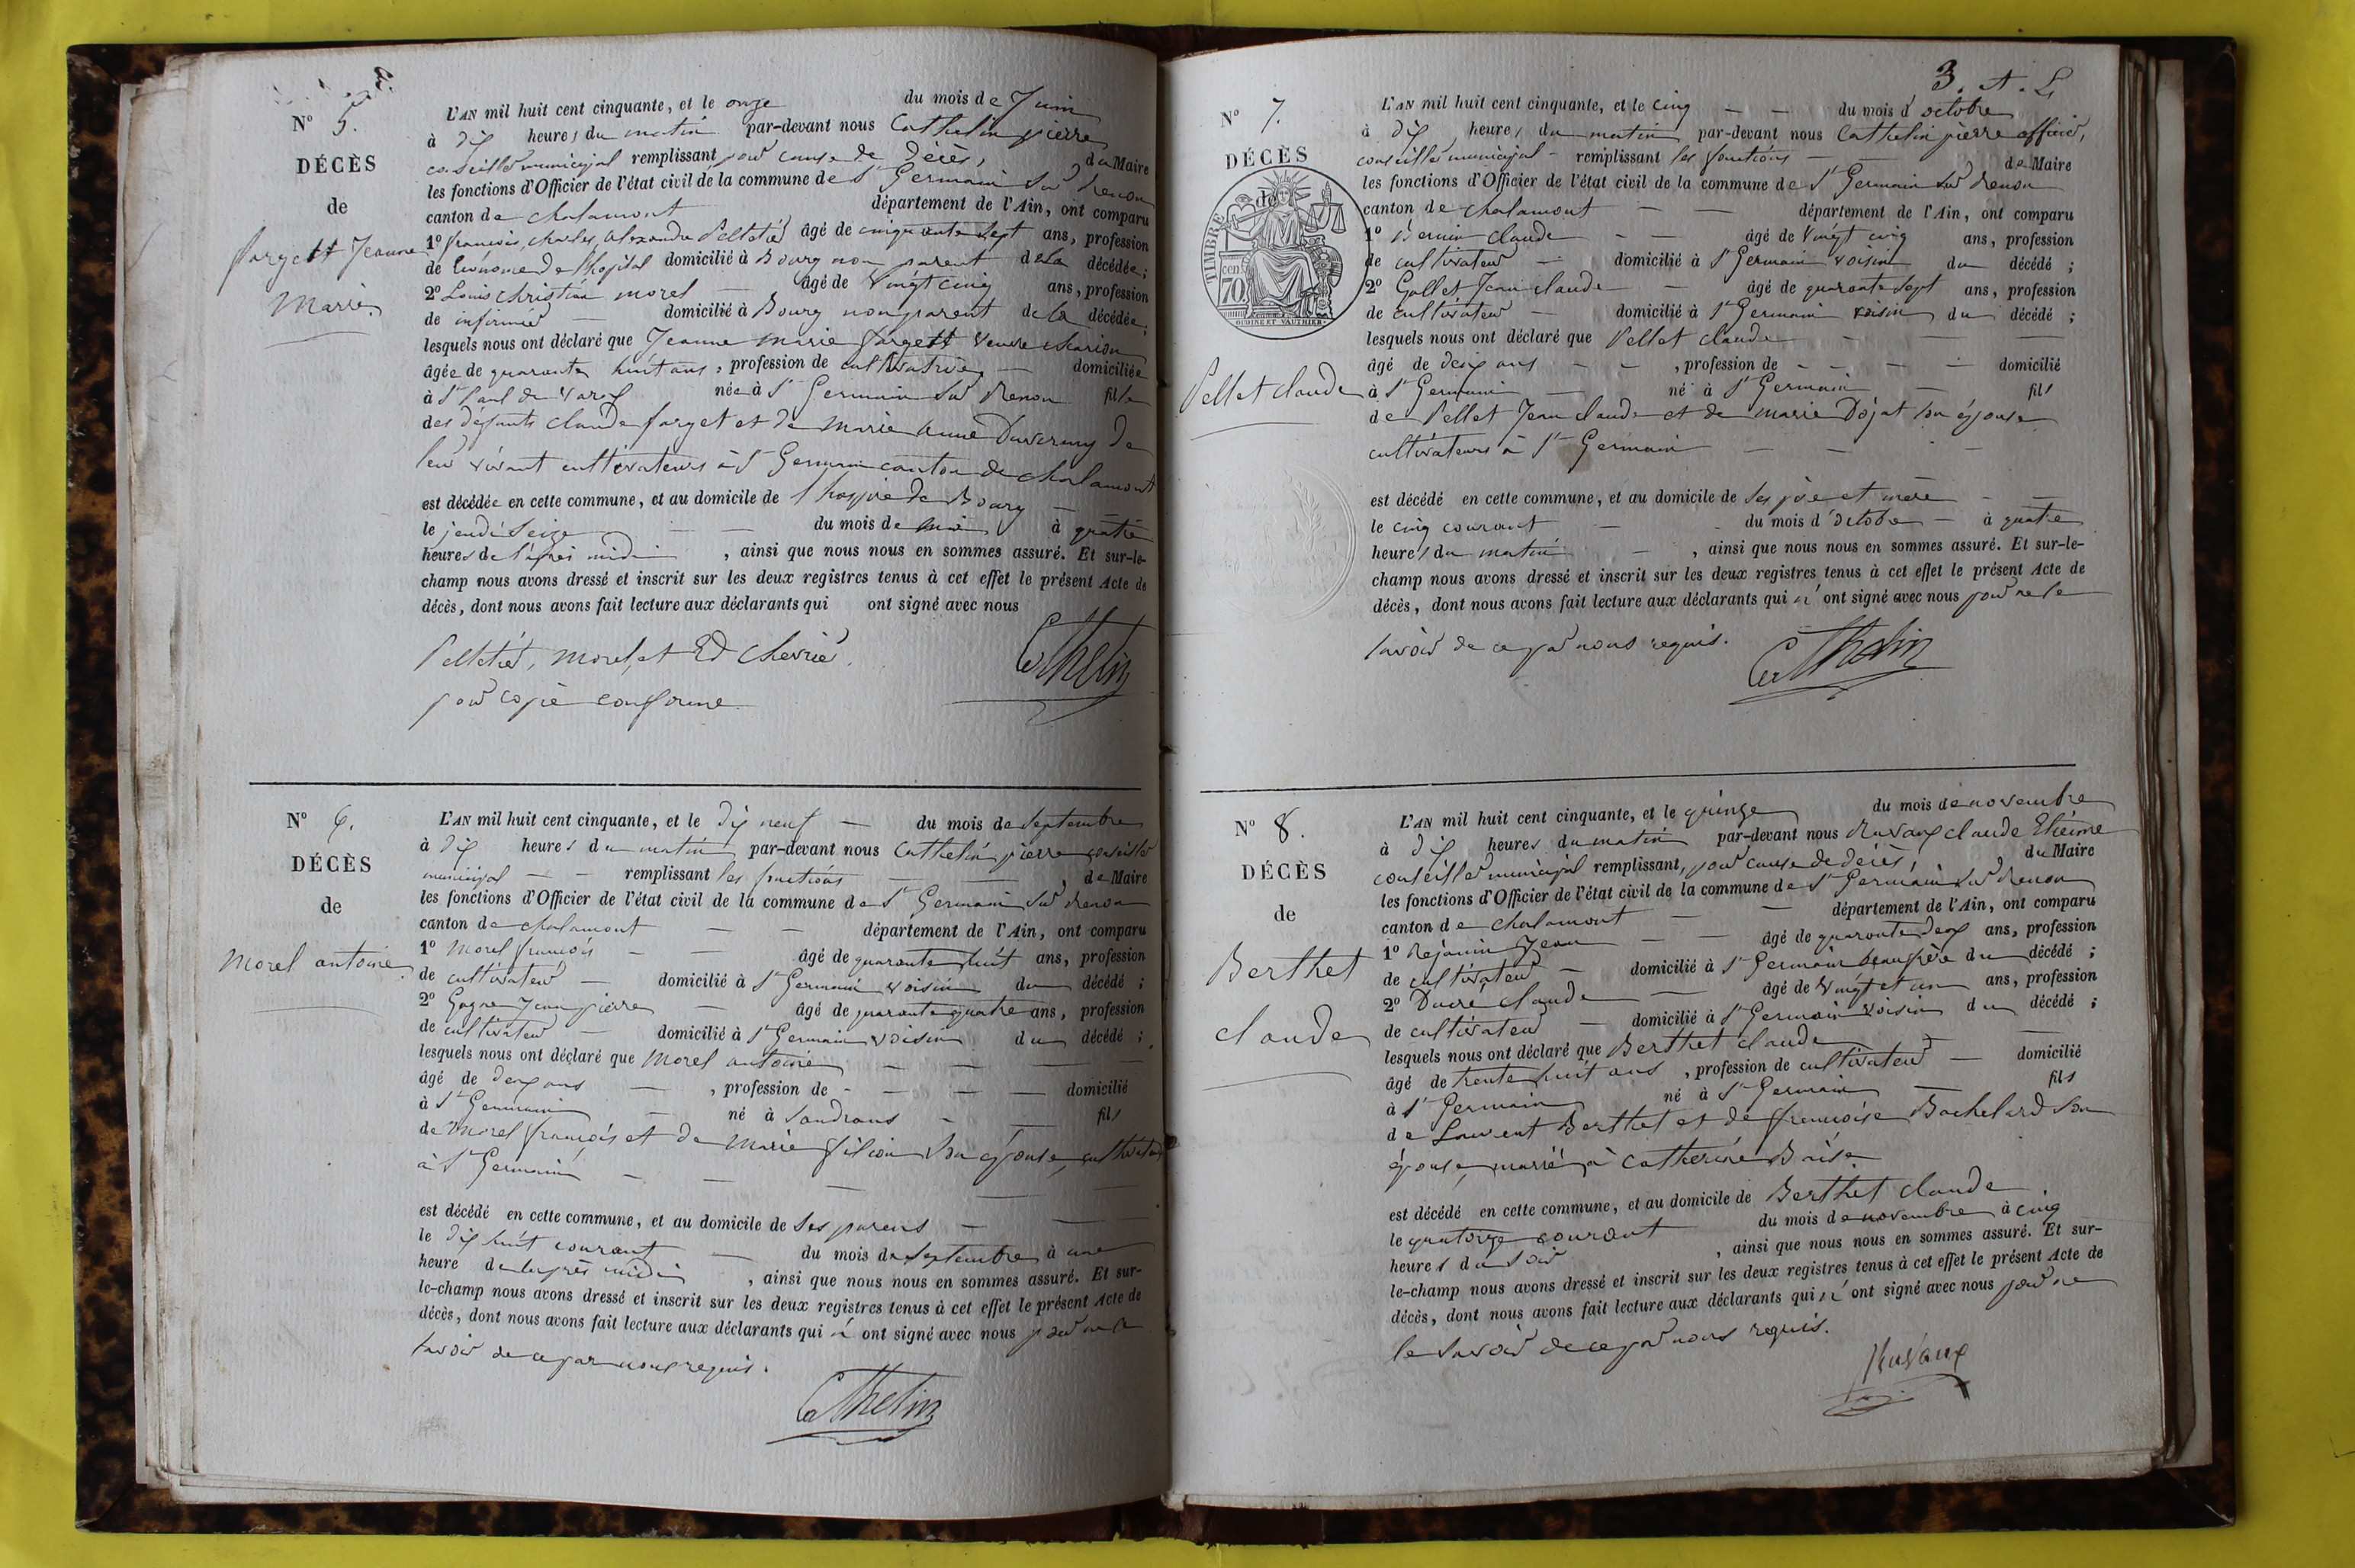 N° 5.
DÉCÈS
de
fargett Jeanne
Marie.
L'AN mil huit cent cinquante, et le onze du mois de Juin
à dix heures du matin par-devant nous Cathelin pierre
conseiller municipal remplissant pour cause de décès, du Maire
les fonctions d'Officier de l'état civil de la commune de St Germain sur Renon
canton de chalamont département de l'Ain, ont comparu
1° françois, charles, alexandre Pelletié âgé de cinquante sept ans, profession
de Econome de l'hopital domicilié à Bourg non parent de la décédée ;
2° Louis christian morel âgé de vingt cinq ans, profession
de infirmier domicilié à Bourg non parent de la décédée ;
lesquels nous ont déclaré que Jeanne marie fargett veuve charion
âgée de quarante huit ans, profession de cultivatrice domiciliée
à St Paul de varax née à St Germain sur Renon fille
des défunts claude farget et de marie anne Duverney de
leur vivant cultivateurs à St Germain canton de chalamont
est décédée en cette commune, et au domicile de l'hospice de Bourg
le jeudi seize du mois de mai à quatre
heures de l'après midi , ainsi que nous nous en sommes assuré. Et sur-le-
champ nous avons dressé et inscrit sur les deux registres tenus à cet effet le présent Acte de
décès, dont nous avons fait lecture aux déclarants qui ont signé avec nous
Pelletié, morel, et Ed chevrier.
pour copie conforme
Cathelin
N° 6.
DÉCÈS
de
Morel antoine.
L'AN mil huit cent cinquante, et le dix neuf du mois de septembre
à dix heures du matin par-devant nous Cathelin pierre conseiller
municipal remplissant les fonctions de Maire
les fonctions d'Officier de l'état civil de la commune de St Germain sur Renon
canton de chalamont département de l'Ain, ont comparu
1° Morel françois âgé de quarante huit ans, profession
de cultivateur domicilié à St Germain voisin du décédé ;
2° Gagne Jean pierre âgé de quarante quatre ans, profession
de cultivateur domicilié à St Germain voisin du décédé ;
lesquels nous ont déclaré que Morel antoine
âgé de deux ans , profession de domicilié
à St Germain né à Sandrans fils
de Morel françois et de Marie filion son épouse, cultivateurs
à St Germain
est décédé en cette commune, et au domicile de ses parens
le dix huit courant du mois de septembre à une
heure de l'après midi , ainsi que nous nous en sommes assuré. Et sur-
le-champ nous avons dressé et inscrit sur les deux registres tenus à cet effet le présent Acte de
décès, dont nous avons fait lecture aux déclarants qui n' ont signé avec nous pour ne le
savoir de ce par nous requis.
Cathelin
3. A. L.
N° 7.
DÉCÈS
de
TIMBRE
70 cen.
OUDINE ET VAUTHIER
Pellet claude
L'AN mil huit cent cinquante, et le cinq du mois d'octobre
à dix heures du matin par-devant nous Cathelin pierre officier,
conseiller municipal remplissant les fonctions de Maire
les fonctions d'Officier de l'état civil de la commune de St Germain sur Renon
canton de chalamont département de l'Ain, ont comparu
1° Bernin claude âgé de vingt cinq ans, profession
de cultivateur domicilié à St Germain voisin du décédé ;
2° Gallet Jean claude âgé de quarante sept ans, profession
de cultivateur domicilié à St Germain voisin du décédé ;
lesquels nous ont déclaré que Pellet claude
âgé de deux ans , profession de domicilié
à St Germain né à St Germain fils
de Pellet Jean claude et de marie Dojat son épouse
cultivateurs à St Germain
est décédé en cette commune, et au domicile de ses père et mère
le cinq courant du mois d'octobre à quatre
heures du matin , ainsi que nous nous en sommes assuré. Et sur-le-
champ nous avons dressé et inscrit sur les deux registres tenus à cet effet le présent Acte de
décès, dont nous avons fait lecture aux déclarants qui n' ont signé avec nous pour ne le
savoir de ce par nous requis.
Cathelin
N° 8.
DÉCÈS
de
Berthet
claude
L'AN mil huit cent cinquante, et le quinze du mois de novembre
à dix heures du matin par-devant nous Ravaux claude Etienne
conseiller municipal remplissant, pour cause de décès, du Maire
les fonctions d'Officier de l'état civil de la commune de St Germain sur Renon
canton de chalamont département de l'Ain, ont comparu
1° Rejanin Jean âgé de quarante deux ans, profession
de cultivateur domicilié à St Germain beaufrère du décédé ;
2° Ducre claude âgé de vingt et un ans, profession
de cultivateur domicilié à St Germain voisin du décédé ;
lesquels nous ont déclaré que Berthet claude
âgé de trente huit ans , profession de cultivateur domicilié
à St Germain né à St Germain fils
de Laurent Berthet et de françoise Bachelard son
épouse, marié à Catherine Boise
est décédé en cette commune, et au domicile de Berthet claude
le quatorze courant du mois de novembre à cinq
heures du soir , ainsi que nous nous en sommes assuré. Et sur-
le-champ nous avons dressé et inscrit sur les deux registres tenus à cet effet le présent Acte de
décès, dont nous avons fait lecture aux déclarants qui n' ont signé avec nous pour ne
le savoir de ce par nous requis.
Ravaux